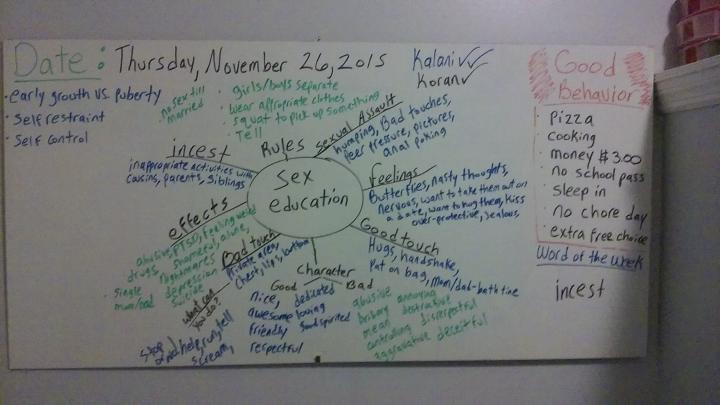 Date: Thursday, November 26, 2015
Kalani
Koran
· early growth vs. puberty
· Self restraint
· Self control
no sex till
married
· girls/boys separate
· wear appropriate clothes
· squat to pick up something
· Tell
Rules
Sexual Assault
humping, Bad touches,
peer pressure, pictures,
anal poking
incest
inappropriate activities with
cousins, parents, siblings
Sex
education
Feelings
Butterflies, nasty thoughts,
nervous, want to take them out on
a date, want to hug them, kiss
over-protective, jealous,
effects
abusive, PTSD, feeling weird
drugs, shameful, alone,
Nightmares
single depression
mom/dad suicide
Bad touch
Private area,
chest, lips, buttom
Good touch
Hugs, handshake,
Pat on bag, mom/dad-bath time
What can
you do?
Stop
avoid, help, run, tell
scream,
Character
Good Bad
nice, dedicated
awesome loving
friendly Good spirited
respectful
abusive annoying
bribery destructive
mean disrespectful
controlling deceitful
aggravative
Good
Behavior
· Pizza
· cooking
· money $3.00
· no school pass
· sleep in
· no chore day
· extra free choice
Word of the Week
incest